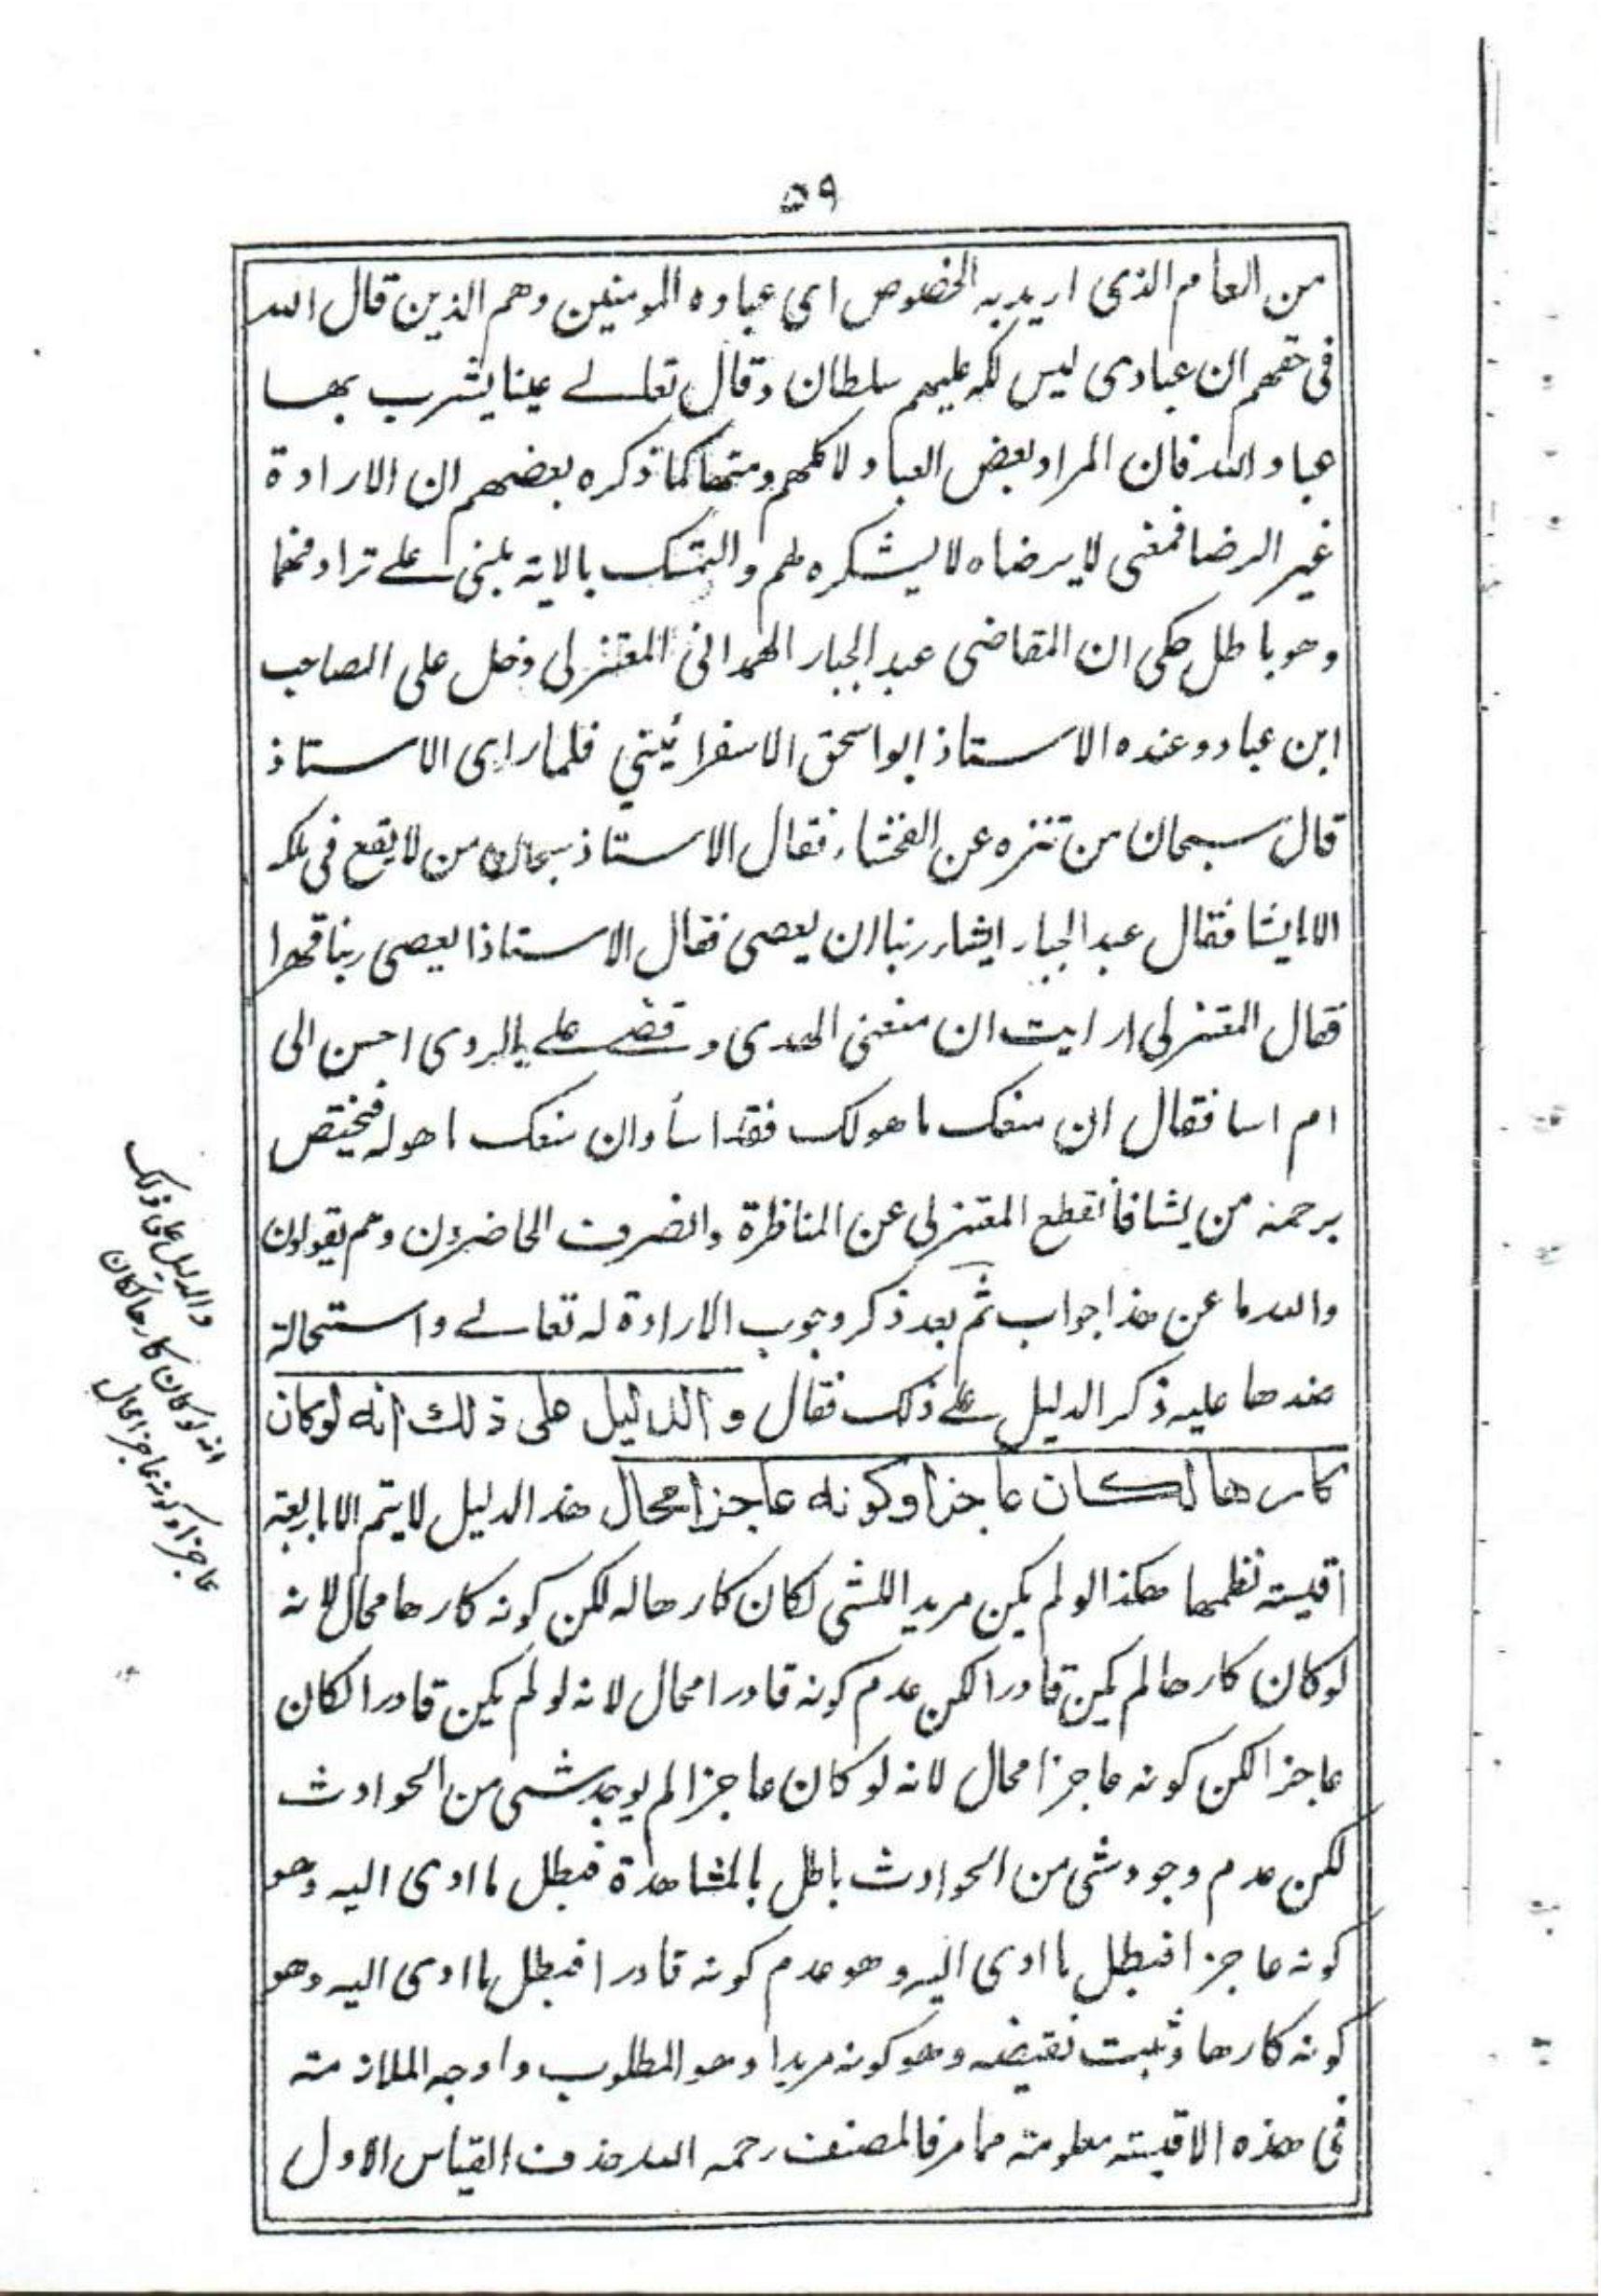 ٥٩
من العام الذى اريد به الخصوص اى عباده المومنين وهم الذين قال الله
فى حقهم ان عبادى ليس لك عليهم سلطان وقال تعالے عينا يشرب بها
عباد الله فان المراد بعض العباد لا كلهم ومنها كما ذكره بعضهم ان الارادة
غير الرضا فمعنى لا يرضاه لا يشكره لهم والتمسك بالاية مبنى علے ترادفهما
وهو باطل حكى ان القاضى عبد الجبار الهمدانى المعتزلى دخل على الصاحب
ابن عباد وعنده الاستاذ ابو اسحق الاسفرائينى فلما راى الاستاذ
قال سبحان من تنزه عن الفحشاء فقال الاستاذ سبحان من لا يقع فى ملكه
الا ما يشا فقال عبد الجبار ايشاء ربنا ان يعصى فقال الاستاذ ايعصى ربنا قهرا
فقال المعتزلى ارايت ان منعنى الهدى وقضے علے بالردى احسن الى
ام اسا فقال ان منعك ما هو لك فقد اسأ وان منعك ما هو له فيختص
برحمته من يشا فانقطع المعتزلى عن المناظرة وانصرف الحاضرون وهم يقولون
والله ما عن هذا جواب ثم بعد ذكر وجوب الارادة له تعالے واستحالة
ضدها عليه ذكر الدليل علے ذلك فقال والدليل على ذلك انه لو كان
كارها لكان عاجزا وكونه عاجزا محال هذا الدليل لا يتم الا باربعة
اقيسة نظمها هكذا لو لم يكن مريدا للشى لكان كارها له لكن كونه كارها محال لانه
لو كان كارها لم يكن قادرا لكن عدم كونه قادرا محال لانه لو لم يكن قادرا لكان
عاجزا لكن كونه عاجزا محال لانه لو كان عاجزا لم يوجد شى من الحوادث
لكن عدم وجود شى من الحوادث باطل بالمشاهدة فبطل ما ادى اليه وهو
كونه عاجزا فبطل ما ادى اليه وهو عدم كونه قادرا فبطل ما ادى اليه وهو
كونه كارها وثبت نقيضه وهو كونه مريدا وهو المطلوب واوجه الملازمة
فى هذه الاقيسة معلومة مما مر فالمصنف رحمه الله حذف القياس الاول
والدليل على ذلك
انه لو كان كارها لكان
عاجزا وكونه عاجزا محال